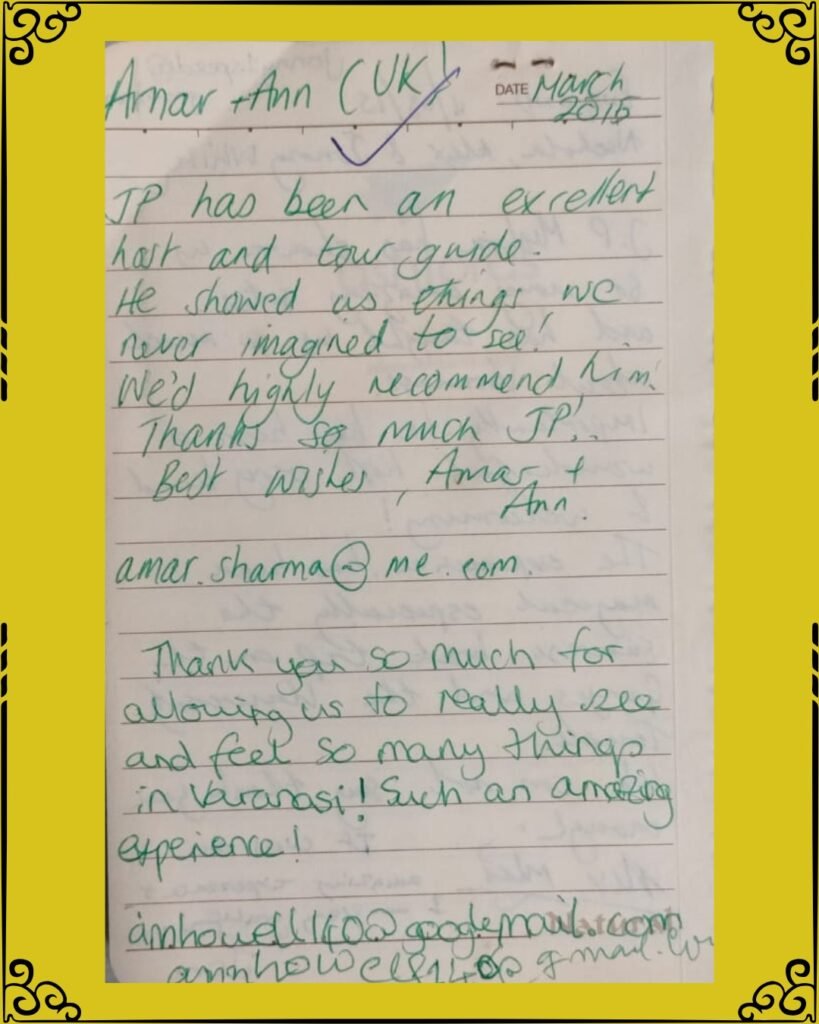 Amar + Ann (UK)
DATE March
2015
JP has been an excellent
host and tour guide.
He showed us things we
never imagined to see!
We'd highly recommend him.
Thanks so much JP!
Best wishes, Amar +
Ann.
amar.sharma@me.com.
Thank you so much for
allowing us to really see
and feel so many things
in Varanasi! Such an amazing
experience!
annhowell140@googlemail.com